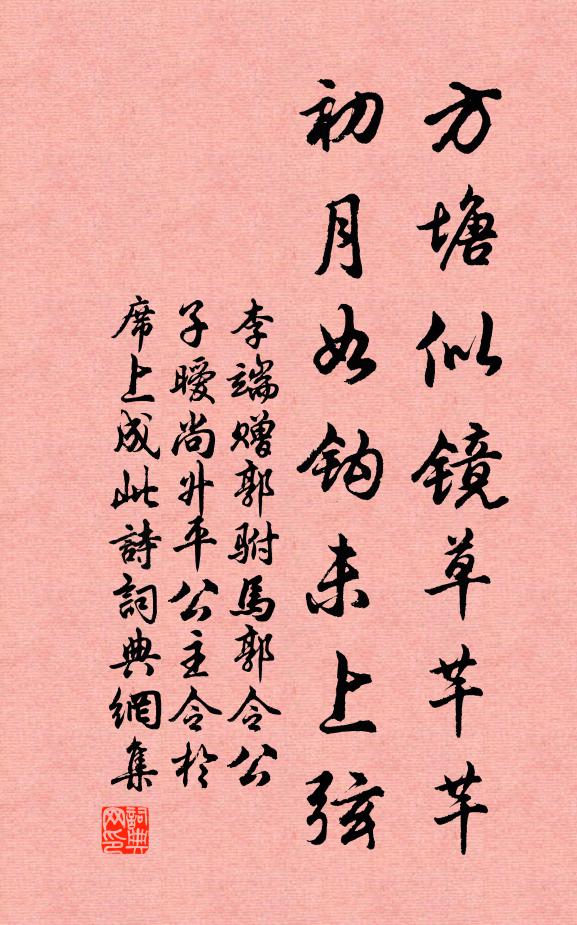 方塘似镜草芊芊
初月如钩未上弦
李端赠郭驸馬郭令公
子暧尚升平公主令於
席上成此詩詞典網集
詞典网印